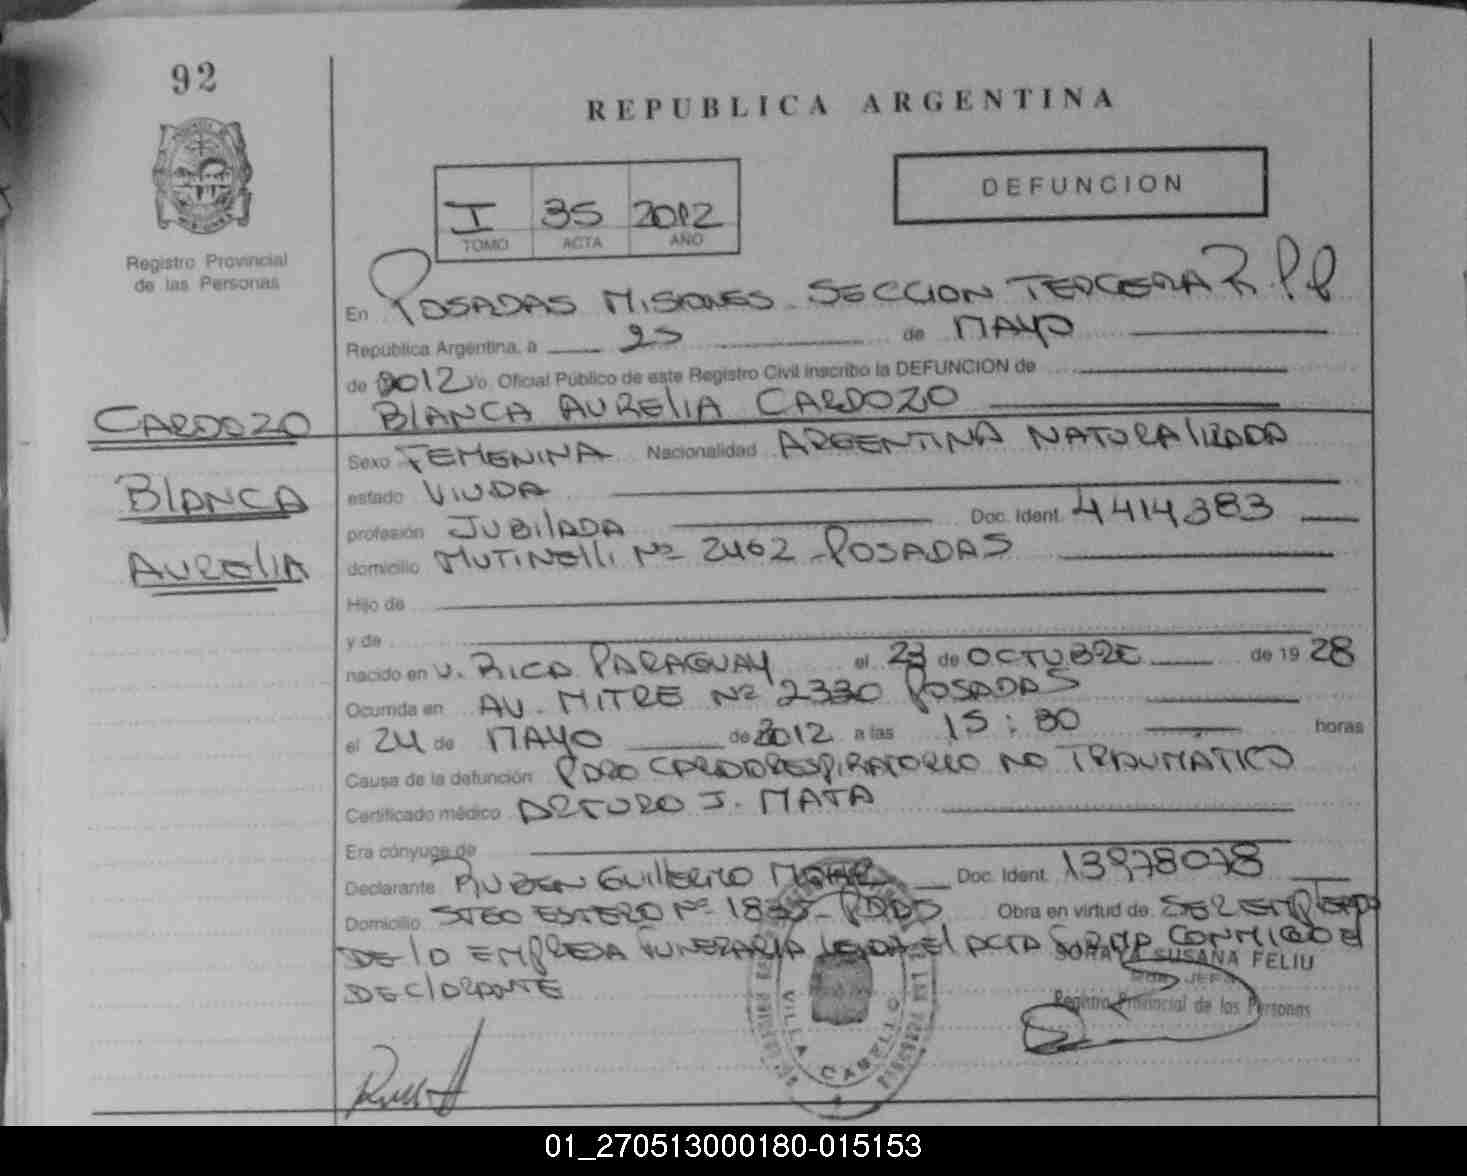 92
REPUBLICA ARGENTINA
DEFUNCION
I 35 2012
TOMO ACTA AÑO
Registro Provincial
de las Personas
En POSADAS MISIONES SECCION TERCERA R.P.P
República Argentina, a 25 de MAYO
de 2012 Yo, Oficial Público de este Registro Civil inscribo la DEFUNCION de
BLANCA AURELIA CARDOZO
CARDOZO
BLANCA
AURELIA
Sexo FEMENINA Nacionalidad ARGENTINA NATURALIZADA
estado VIUDA
profesión JUBILADA Doc. Ident. 4414383
domicilio MUTINELLI Nº 2462 - POSADAS
Hijo de
y de
nacido en V. RICA PARAGUAY el 23 de OCTUBRE de 19 28
Ocurrida en AV. MITRE Nº 2330 POSADAS
el 24 de MAYO de 2012 a las 15:30 horas
Causa de la defunción PARO CARDIORESPIRATORIO NO TRAUMATICO
Certificado médico ARTURO J. MATA
Era cónyuge de
Declarante RUBEN GUILLERMO Doc. Ident. 13978078
Domicilio STGO ESTERO Nº 1835 - PDAS Obra en virtud de SER EMPLEADO
DE LA EMPRESA FUNERARIA LEIDA EL ACTA FIRMA CONMIGO EL
DECLARANTE
SORAYA SUSANA FELIU
SUB JEFA
Registro Provincial de las Personas
VILLA CABELLO
01_270513000180-015153